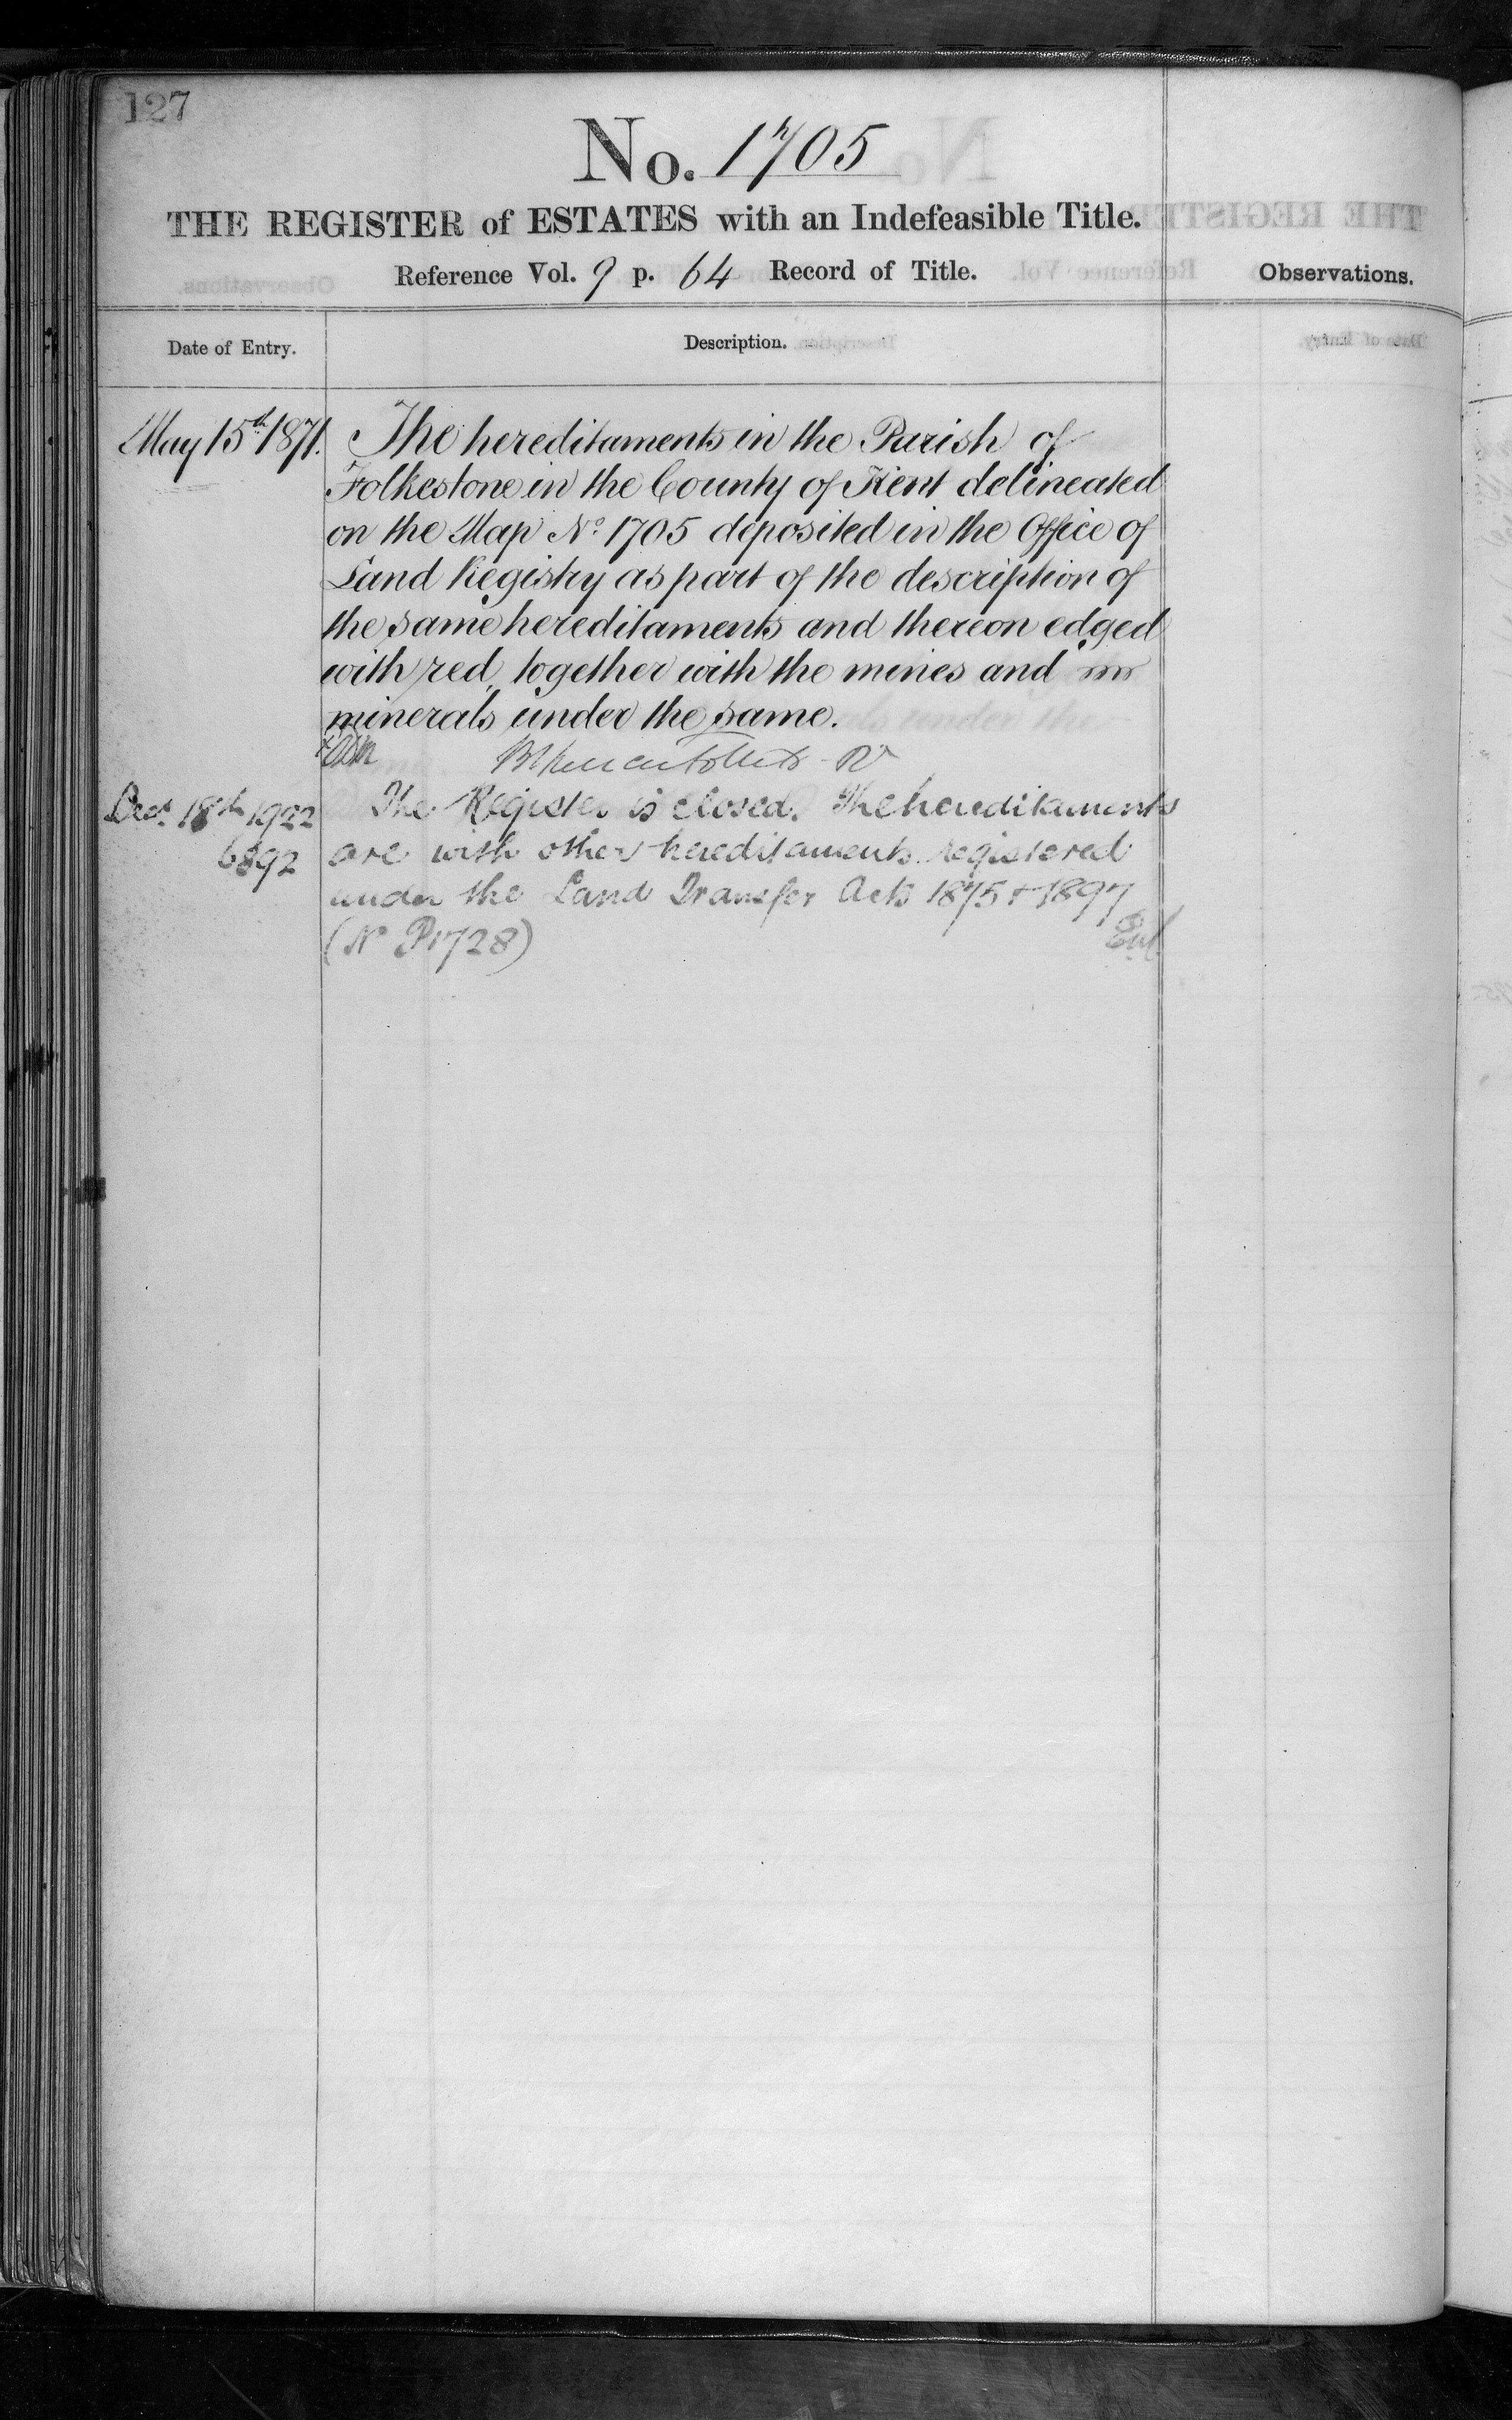 127
No. 1705
THE REGISTER of ESTATES with an Indefeasible Title.
Reference Vol. 9 p. 64 Record of Title.
Observations.
Date of Entry.
Description.
May 15th 1871.
The hereditaments in the Parish of
Folkestone in the County of Kent delineated
on the Map No. 1705 deposited in the Office of
Land Registry as part of the description of
the same hereditaments and thereon edged
with red, together with the mines and
minerals under the same.
Decr 18th 1922
6892
The Register is closed. The hereditaments
are with other hereditaments registered
under the Land Transfer Acts 1875 & 1897
(No P1728)